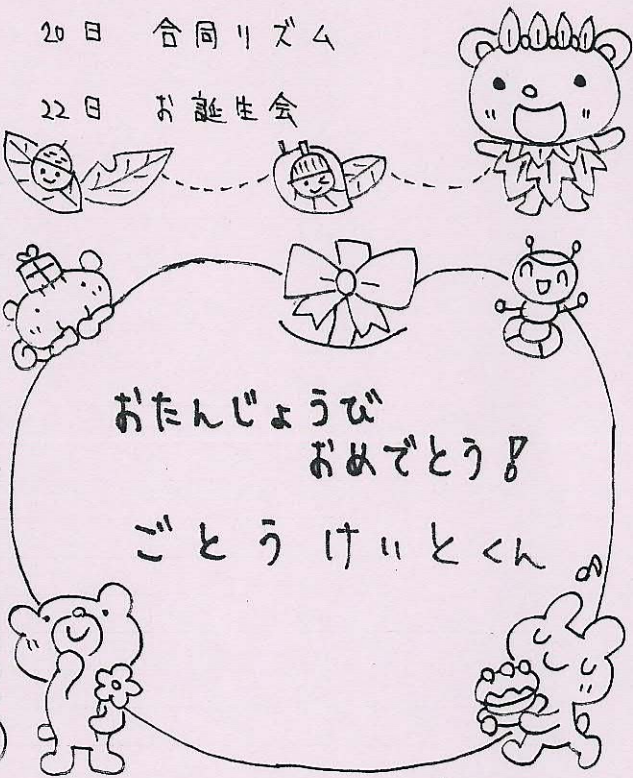 20日 合同リズム
22日 お誕生会
おたんじょうび
おめでとう!
ごとう けいとくん